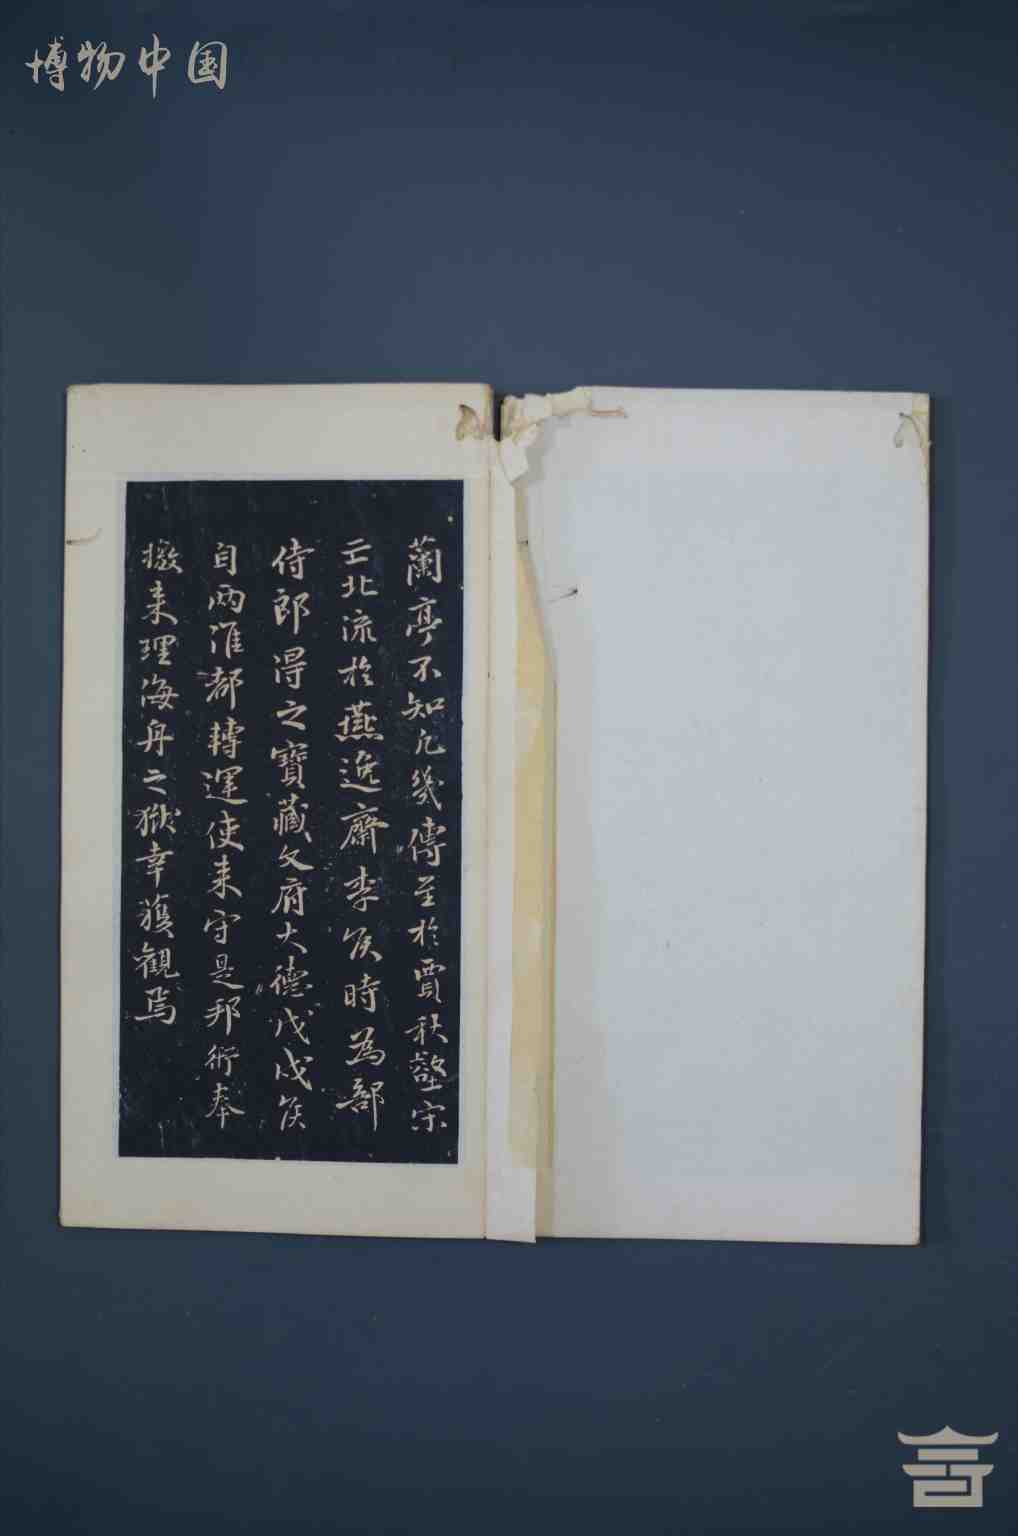 博物中国
蘭亭不知凡幾傳至於賈秋壑宋
亡北流於燕逸齋李侯時為部
侍郎得之寶藏文府大德戊戌侯
自兩淮都轉運使來守是邦衍奉
檄来理海舟之獄幸獲観焉